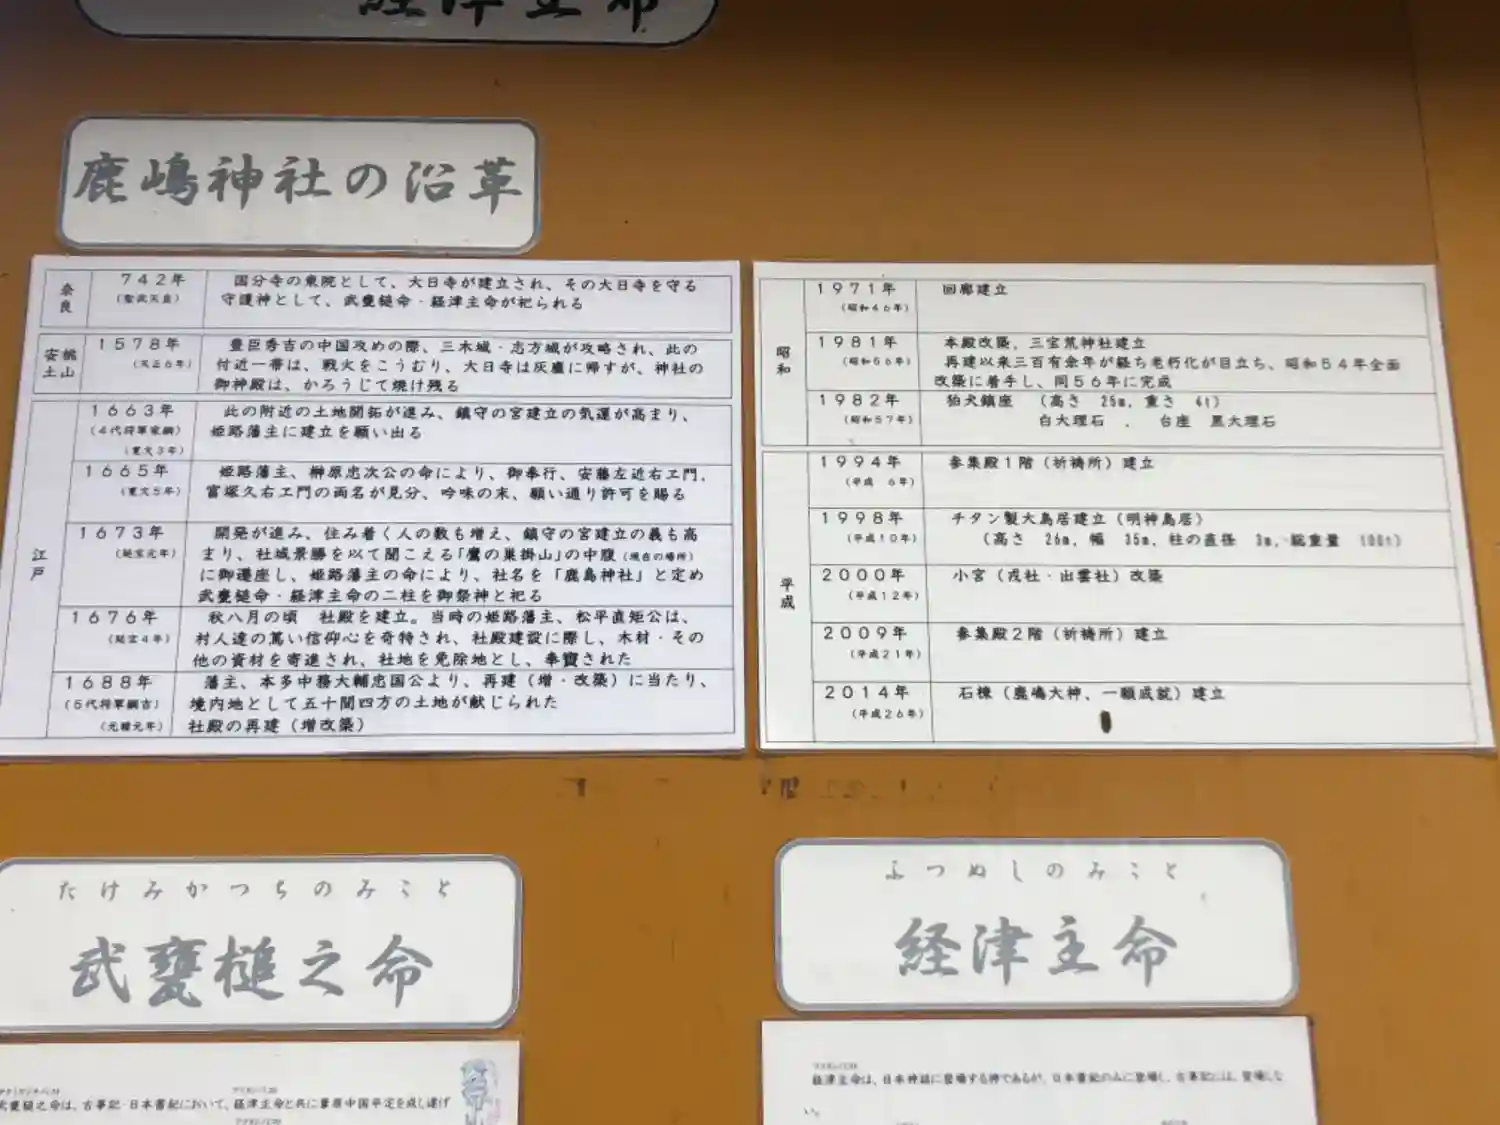 経津主命
鹿嶋神社の沿革
奈良
742年
(聖武天皇)
国分寺の東院として、大日寺が建立され、その大日寺を守る
守護神として、武甕槌命・経津主命が祀られる
安土桃山
1578年
(天正6年)
豊臣秀吉の中国攻めの際、三木城・志方城が攻略され、此の
付近一帯は、戦火をこうむり、大日寺は灰塵に帰すが、神社の
御神殿は、かろうじて焼け残る
江戸
1663年
(4代将軍家綱)
(寛文3年)
此の附近の土地開拓が進み、鎮守の宮建立の気運が高まり、
姫路藩主に建立を願い出る
1665年
(寛文5年)
姫路藩主、榊原忠次公の命により、御奉行、安藤左近右ヱ門、
富塚久右ヱ門の両名が見分、吟味の末、願い通り許可を賜る
1673年
(延宝元年)
開発が進み、住み着く人の数も増え、鎮守の宮建立の義も高
まり、社域景勝を以て聞こえる「鷹の巣掛山」の中腹(現在の場所)
に御遷座し、姫路藩主の命により、社名を「鹿島神社」と定め
武甕槌命・経津主命の二柱を御祭神と祀る
1676年
(延宝4年)
秋八月の頃 社殿を建立。当時の姫路藩主、松平直矩公は、
村人達の篤い信仰心を奇特され、社殿建設に際し、木材・その
他の資材を寄進され、社地を免除地とし、奉寶された
1688年
(5代将軍綱吉)
(元禄元年)
藩主、本多中務大輔忠国公より、再建(増・改築)に当たり、
境内地として五十間四方の土地が献じられた
社殿の再建(増改築)
昭和
1971年
(昭和46年)
回廊建立
1981年
(昭和56年)
本殿改築、三宝荒神社建立
再建以来三百有余年が経ち老朽化が目立ち、昭和54年全面
改築に着手し、同56年に完成
1982年
(昭和57年)
狛犬鎮座 (高さ 25m, 重さ 4t)
白大理石 , 台座 黒大理石
平成
1994年
(平成 6年)
参集殿1階(祈祷所)建立
1998年
(平成10年)
チタン製大鳥居建立(明神鳥居)
(高さ 26m, 幅 35m, 柱の直径 3m, 総重量 100t)
2000年
(平成12年)
小宮(戎社・出雲社)改築
2009年
(平成21年)
参集殿2階(祈祷所)建立
2014年
(平成26年)
石棟(鹿嶋大神、一願成就)建立
たけみかつちのみこと
武甕槌之命
ふつぬしのみこと
経津主命
武甕槌之命は、古事記・日本書紀において、経津主命と共に葦原中国平定を成し遂げ
経津主命は、日本神話に登場する神であるが、日本書紀のみに登場し、古事記には、登場しな
い。